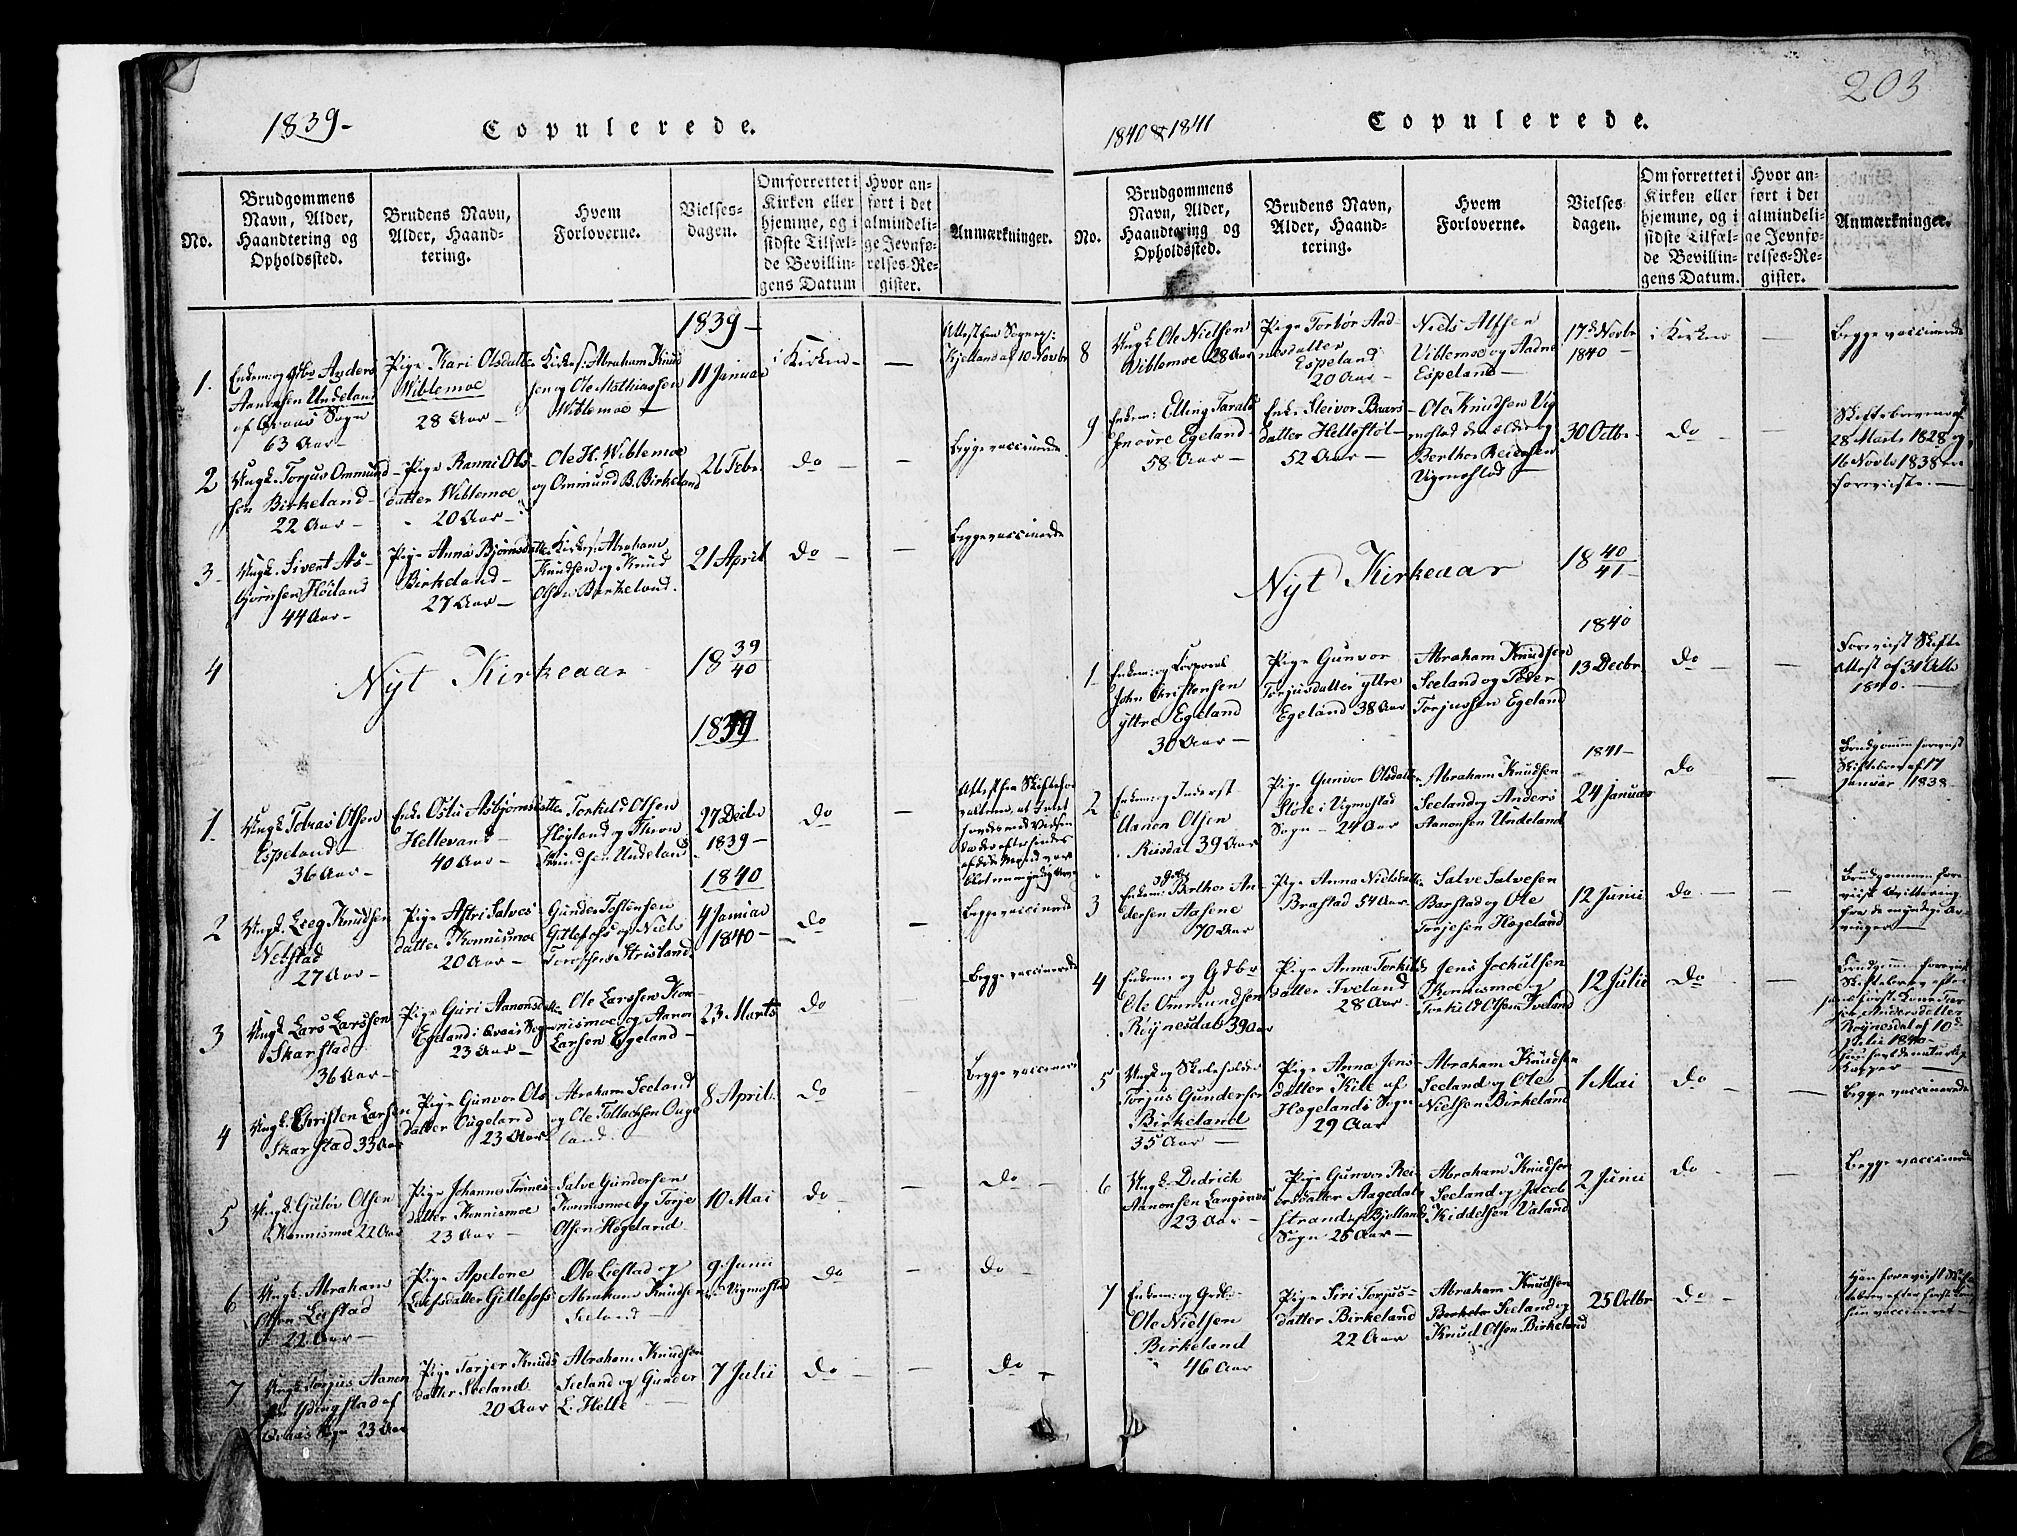 1839-
Copulerede.
No.
Brudgommens
Navn, Alder,
Haandtering og
Opholdssted.
Brudens Navn,
Alder, Haand-
tering.
Hvem
Forloverne.
Vielses-
dagen.
Om forrettet i
Kirken eller
hjemme, og i
sidste Tilfæl-
de Bevillin-
gens Datum
Hvor an-
ført i det
almindeli-
ge Jevnfø-
relses-Re-
gister.
Anmærkninger.
1839-
1.
Anders
Aanensen Undeland
af Sogn
63 Aar-
Pige Kari Olsdatter
Wiblemoe
28 Aar-
Abraham Knud
sen og Ole Mathiassen
Wiblemoe
11 Januar
i Kirken-
-
10 Novbr
2
Ungk. Torjus Ommund
sen Birkeland-
22 Aar-
Pige Ranni Ols-
datter Wiblemoe
20 Aar-
Ole H. Wiblemoe
og Ommund B. Birkeland
26 Febr
do -
-
Begge vaccinerede
3-
Ungk. Sivert As-
bjørnsen Høiland
44 Aar-
Pige Anna Bjørnsdatter
Birkeland-
27 Aar-
Abraham
Knudsen og Knud
Olsen Birkeland.
21 April
do -
-
Begge vaccinerede
4
Nyt Kirkeaar
18 39/40
1839
1.
Ungk. Tobias Olsen
Espeland-
36 Aar-
Enke Osla Asbjørnsdatter
Hellevand-
40 Aar-
Torkild Olsen
Høyland og Thron
Knudsen Undeland
27 Decbr
1839-
do
-
1840
2
Ungk. Leeg Knudsen
Nebstad
27 Aar-
Pige Astri Salves
datter Konnismoe
20 Aar-
Gunder Tostensen
Gitlefofs og Niels
4 Januar
1840-
do
Begge vaccinerede
3
Ungk. Lars Larssen
Skarstad
36 Aar-
Pige Guri Aanons
Egeland i
23 Aar-
Ole Larssen Kon-
nismoe og Aanon
Larsen Egeland-
23 Marts
do
Begge vaccinerede
4
Ungk. Christen Larsen
Skarstad 33 Aar
Pige Gunvor Ols
datter Ougeland
23 Aar
Abraham Seeland
og Ole Tollachsen Ouge
land.
8 April.
do
Begge vaccinere
5
Ungk. Gulov Olsen
Konnismoe 22 Aar
Pige Johanne Tønnes
datter Konnismoe
23 Aar-
Salve Gundersen
Konnismoe og Torje
Olsen Hogeland.
10 Mai
do
-
do -
6
Ungk. Abraham
Olsen Liestad
22 Aar-
Pige Apelone
Leifsdatter Gitlefofs
Ole Liestad og
Abraham Knudsen
Seeland-
9 Junii
i Vigmostad
do
-
do -
7
Ungk. Torjus Aanen
sen af
Sogn 23 Aar
Pige Tarjer Knuds
datter Seeland
20 Aar
Abraham Knudsen
Seeland og Gunder
L. Helle
7 Julii
do -
-
do -
203
1840 & 1841
Copulerede.
No.
Brudgommens
Navn, Alder,
Haandtering og
Opholdssted.
Brudens Navn,
Alder, Haand-
tering.
Hvem
Forloverne.
Vielses-
dagen.
Om forrettet i
Kirken eller
hjemme, og i
sidste Tilfæl-
de Bevillin-
gens Datum.
Hvor an-
ført i det
almindeli-
ge Jevnfø-
relses-Re-
gister.
Anmærkninger.
8
Ungk. Ole Nielsen
Viblemoe 28 Aar
Pige Torbør Aad-
nesdatter
Espeland
20 Aar-
Niels Alfsen
Viblemoe og Aadne
Espeland-
17d Novbr
1840-
i Kirken
-
Begge vaccinerede
9
Enkem: Elling Tarald
sen øvre Egeland-
58 Aar-
Enke Sleivor Baars-
datter Hellestøl-
52 Aar-
Ole Knudsen Vig
mostad den ældre og
Berthe Reiersen
Vigmostad-
30 Octbr
do
-
Skiftebreve af
28 Marts 1828 og
16 Novbr 1838 er
foreviste.-
Nyt Kirkeaar
18 40/41-
1840
1
Enkem: og
John Christensen
ytre Egeland
30 Aar-
Pige Gunvor
Torjusdatter yttre
Egeland 38 Aar
Abraham Knudsen
Seeland og Peder
Torjussen Egeland
13 Decbr
do -
-
Forevist Skifte
Attest af 31 Octbr
1840.-
1841-
2
Enkem: og Inderst
Aanen Olsen
Risdal 39 Aar
Pige Gunvor Olsdatter
Støle i Vigmostad
Sogn- 24 Aar
Abraham Knudsen
Seeland og Anders
Aanonsen Undeland
24 Januar
do
-
Brudgom forevist
Skiftebrev af 17
Januar 1838-
3
Enkem: Berthe An-
dersen Aasene
70 Aar
Pige Anna Nielsdatter
Brastad 54 Aar
Salve Salvesen
Barstad og Ole
Torjesen Hægeland
12 Junii
do -
-
Brudgommen fore
viist Qvittering
fra de myndige Ar
vinger-
4
Enkem og Gdbr
Ole Ommundsen
Røynesdal 39 Aar
Pige Anna Torkilds
datter Iveland
28 Aar.
Jens Jochulsen
Konnismoe og
Torkild Olsen Iveland
12 Julii
do -
-
Brudgom forevist
Skiftebrev efter
sin første Kone
Andersdatter
Røynesdal af 10d
Julii 1840-
5
Ungk og Skoleholder
Torjus Gundersen
Birkeland
35 Aar-
Pige Anna Jens-
datter Kile af
Hægelands Sogn
29 Aar
Abraham Knudsen
Seeland og Ole
Nielsen Birkeland
1 Mai
do -
-
Begge vaccinerede
6
Ungk Didrich
Aanonsen
23 Aar-
Pige Gunvor Rei-
ersdatter Aagedal
strand af Bjellands
Sogn 28 Aar-
Abraham Knudsen
Seeland og Jacob
Kiddelsen Valand
2 Junii
do -
-
Begge vaccinerede
7
Enkem: og Grdbr-
Ole Nielsen
Birkeland
46 Aar
Pige Siri Torjus-
datter Birkeland
22 Aar
Abraham Knudsen
Seeland og
Knud Olsen Birkeland
25 Octbr
do -
-
Han forevist Skif
tebrev efter første Kone
hun vaccineret-